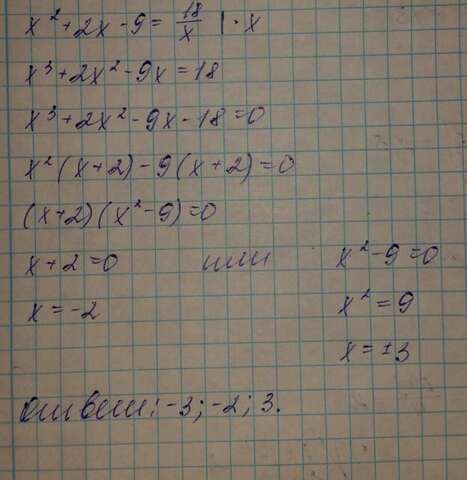 x² + 2x - 9 = 18/x | · x
x³ + 2x² - 9x = 18
x³ + 2x² - 9x - 18 = 0
x² (x + 2) - 9 (x + 2) = 0
(x + 2) (x² - 9) = 0
x + 2 = 0 или x² - 9 = 0
x = -2 x² = 9
x = ±3
Ответ: -3; -2; 3.